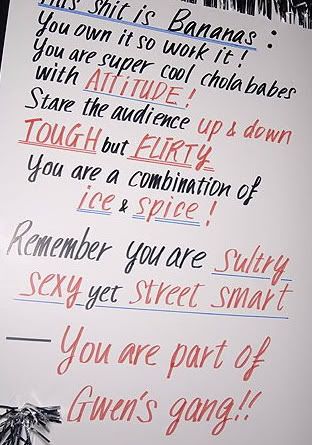 This shit is Bananas:
You own it so work it!
You are super cool chola babes
with ATTITUDE!
Stare the audience up & down
TOUGH but FLIRTY
You are a combination of
ice & spice!
Remember you are sultry
sexy yet street smart
— You are part of
Gwen's gang!!